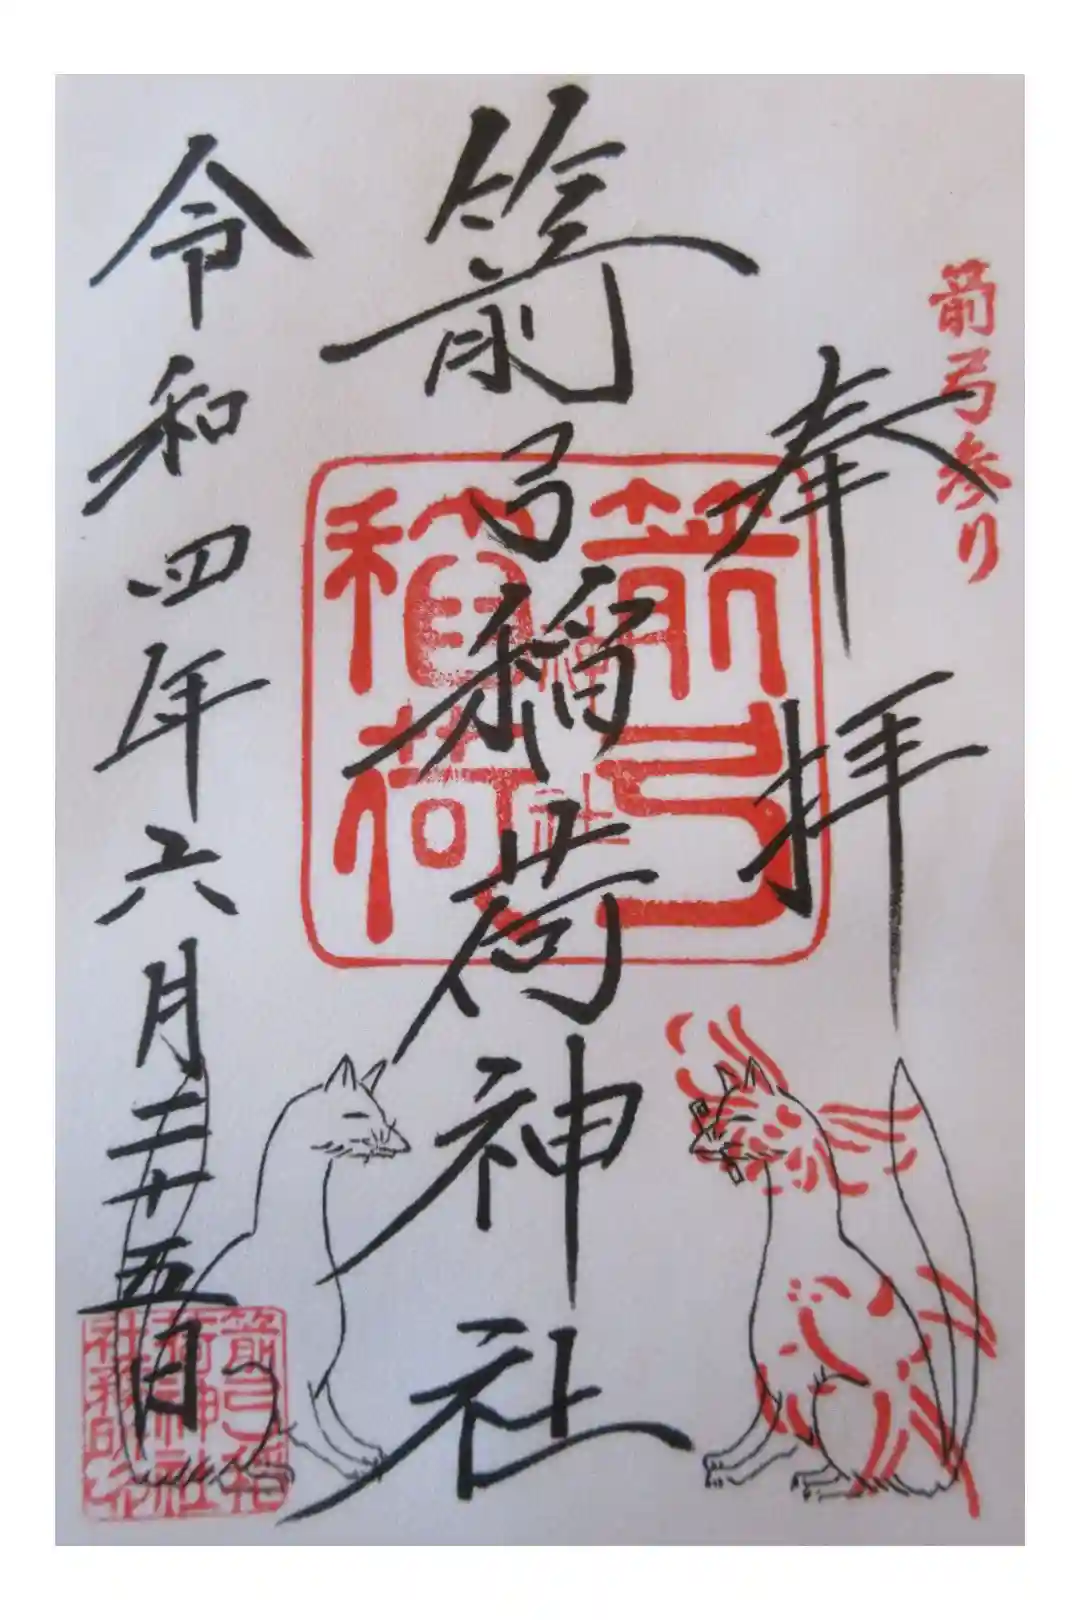 箭弓参り
奉拝
箭弓稲荷神社
箭弓
稲荷
神社
令和四年六月二十五日
箭弓稲
荷神社
社務所